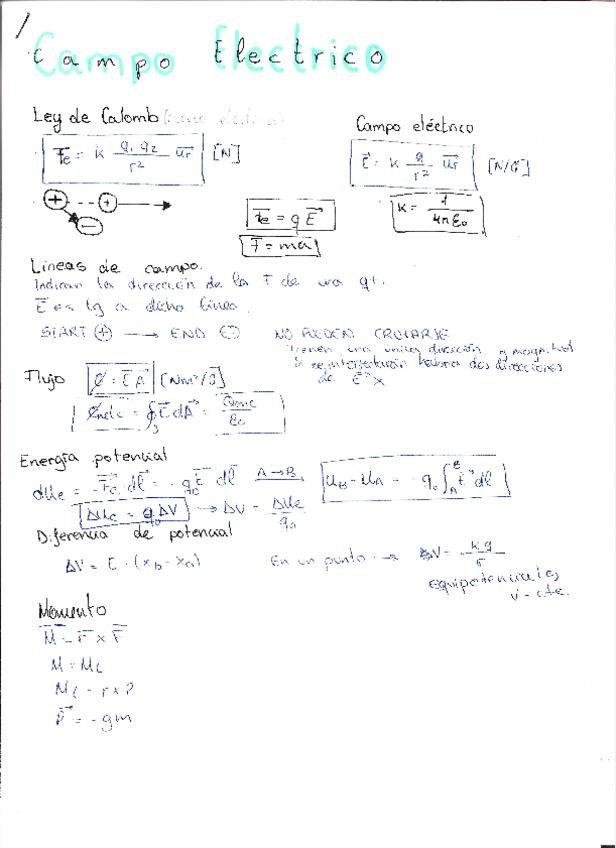 Campo Electrico
Ley de Calomb
Campo eléctrico
Fe = k q₁ q₂ / r² ur [N]
E = k q / r² ur [N/C]
+ -- + →
−
Fe = q E
K = 1 / 4πε₀
F = ma
Lineas de campo.
Indican la dirección de la F de una q+.
E es tg a dicha linea.
START + → END − NO PUEDEN CRUZARSE
Tienen una unica dirección y magnitud
dos direcciones
de E X
Flujo Ø = E A [Nm²/C]
Øneto = ∮s E dA = Qenc / ε₀
Energía potencial
dUe = -Fe dl = -q₀ E dl A→B UB - UA = -q₀ ∫A^B E dl
ΔUe = q₀ ΔV → ΔV = ΔUe / q₀
Diferencia de potencial
ΔV = E · (xb - xa) En un punto → V = k q / r
equipotenciales
V = cte.
Momento
M = r × F
M =
= r × P
P = -gm